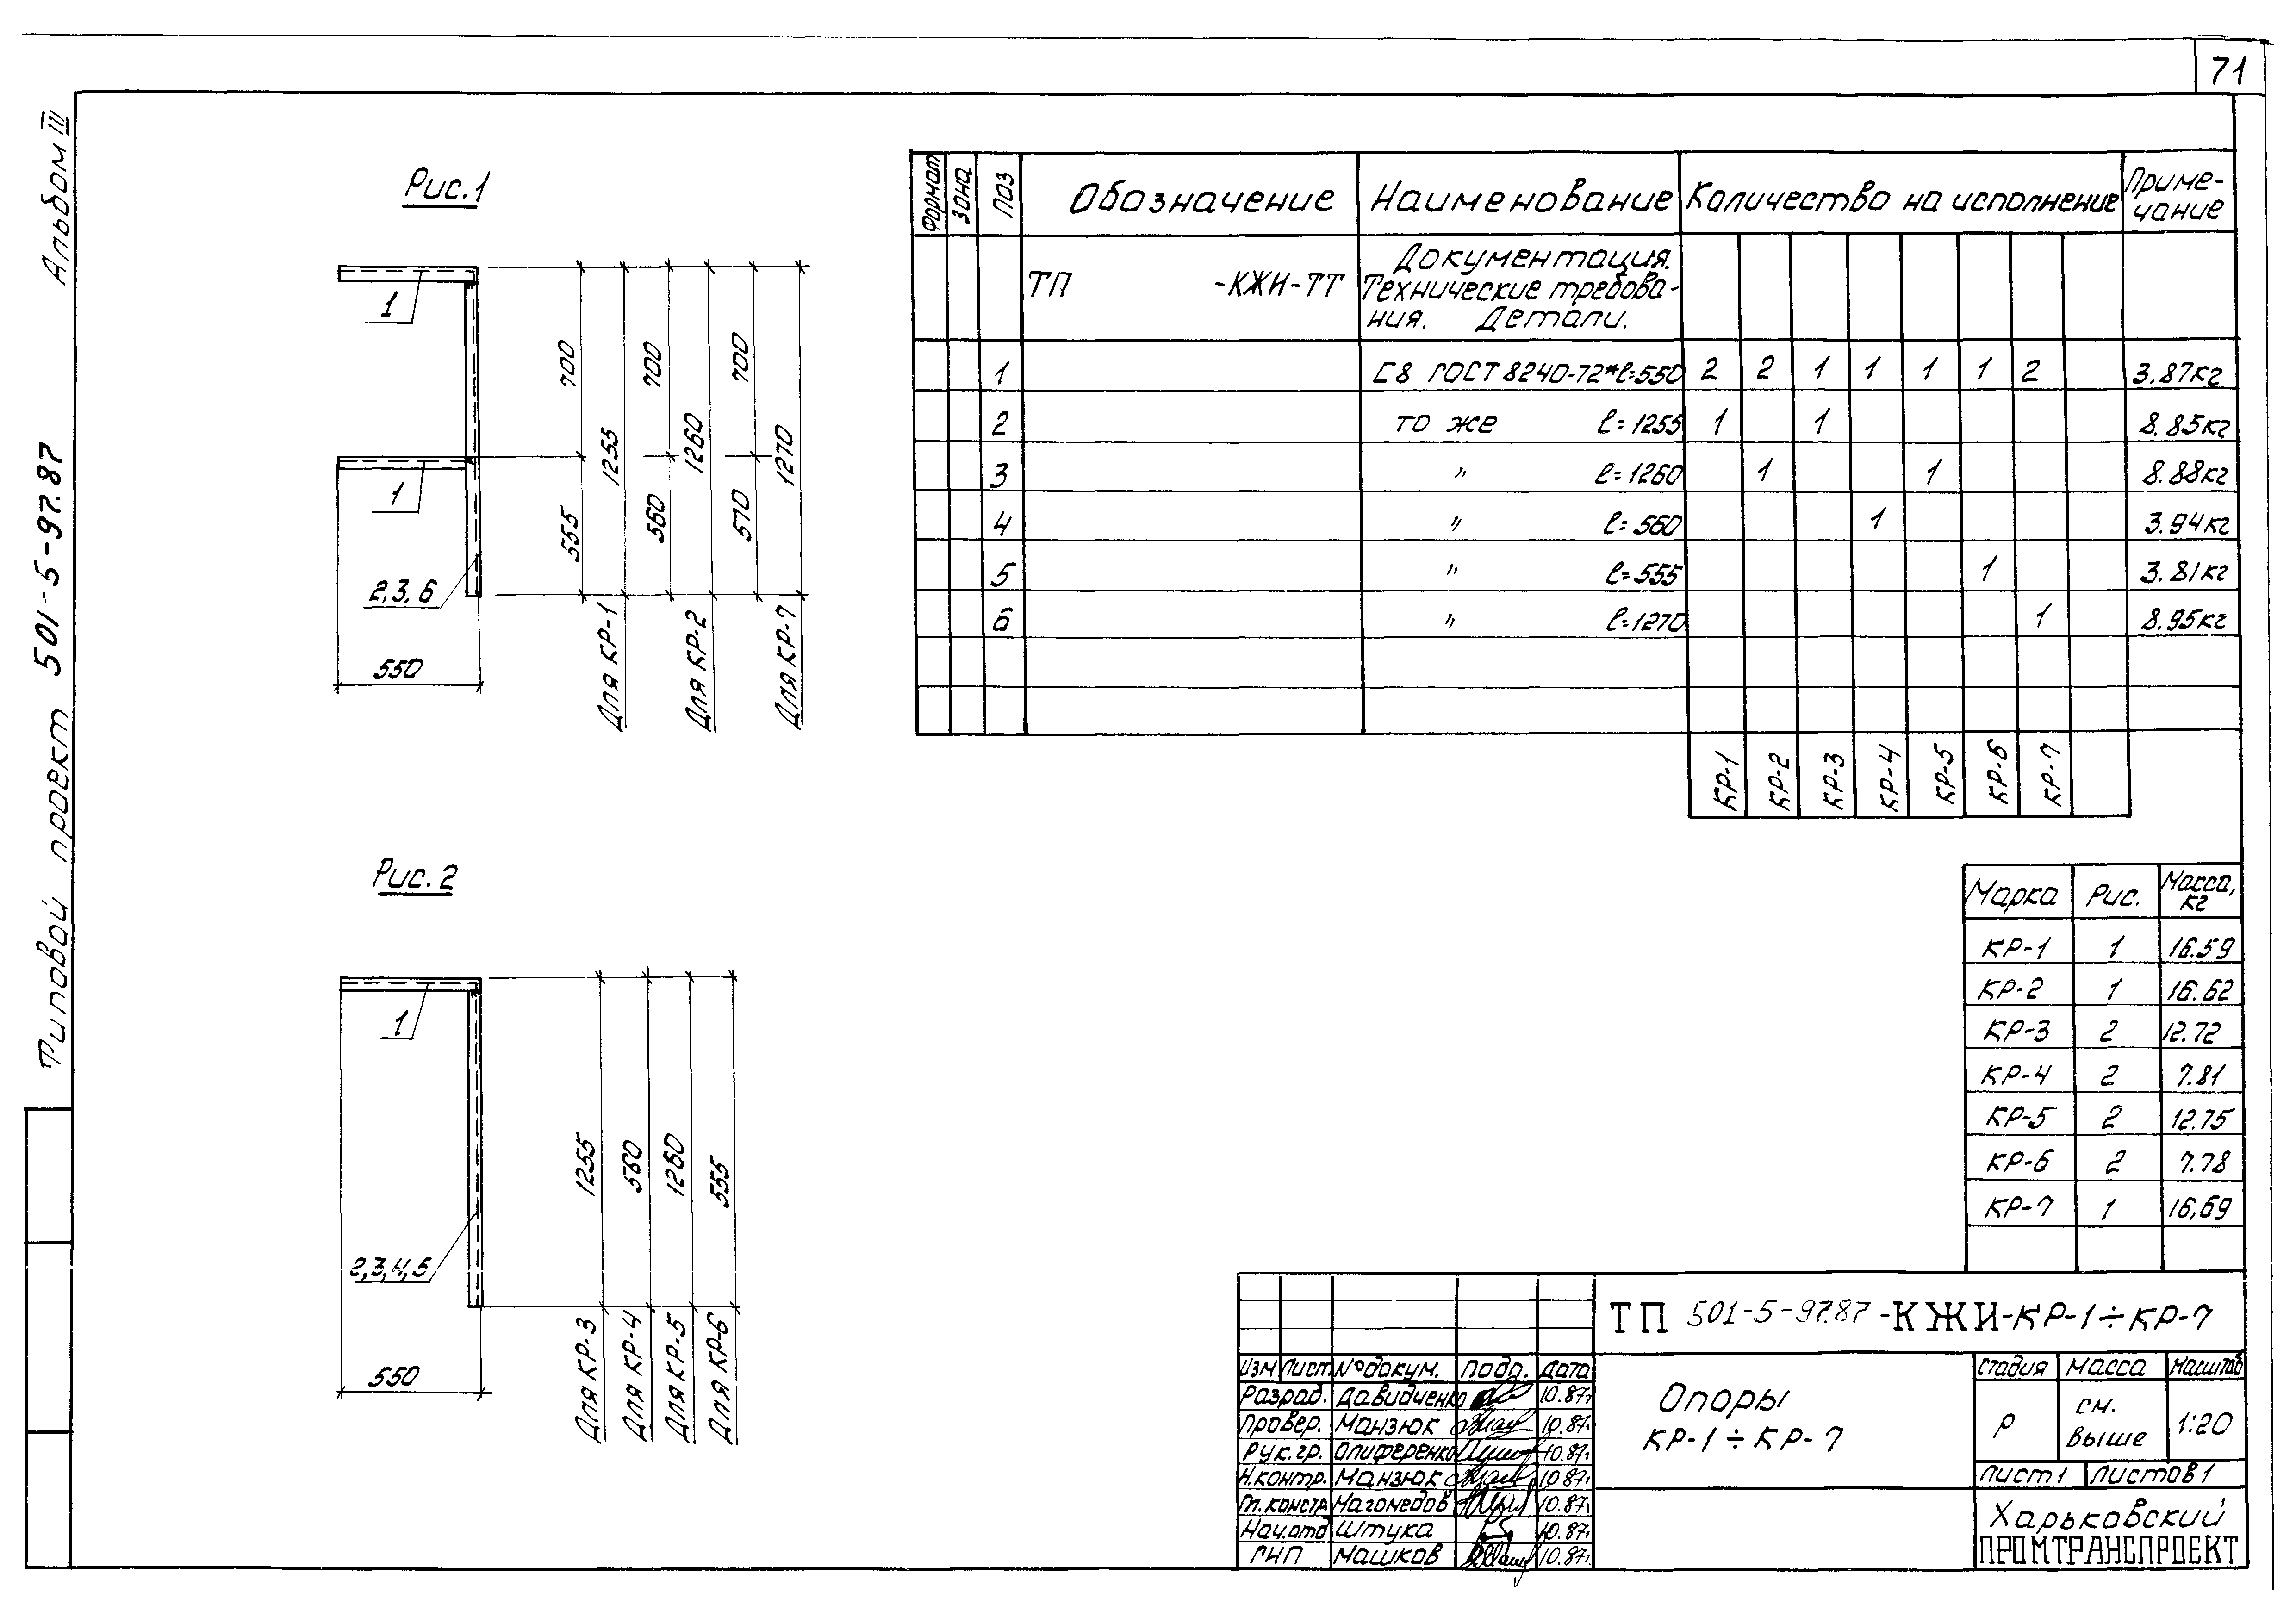 71
Альбом III
Типовой проект 501-5-97.87
Рис.1
1
1
2,3,6
550
700
555
1255
700
560
1260
700
570
1270
Для КР-1
Для КР-2
Для КР-7
Рис. 2
1
2,3,4,5
550
1255
560
1260
555
Для КР-3
Для КР-4
Для КР-5
Для КР-6
Формат Зона Поз Обозначение Наименование Количество на исполнение Приме-
чание
Документация.
ТП -КЖИ-ТТ Технические требова-
ния. Детали.
1 С8 ГОСТ 8240-72* ℓ=550 2 2 1 1 1 1 2 3.87кг
2 то же ℓ=1255 1 1 8.85кг
3 " ℓ=1260 1 1 8.88кг
4 " ℓ=560 1 3.94кг
5 " ℓ=555 1 3.81кг
6 " ℓ=1270 1 8.95кг
КР-1 КР-2 КР-3 КР-4 КР-5 КР-6 КР-7
Марка Рис. Масса,
кг
КР-1 1 16.59
КР-2 1 16.62
КР-3 2 12.72
КР-4 2 7.81
КР-5 2 12.75
КР-6 2 7.78
КР-7 1 16,69
ТП 501-5-97.87-КЖИ-КР-1÷КР-7
Изм Лист №докум. Подп. Дата
Разраб. Давидченко 10.87г.
Провер. Манзюк 10.87г.
Рук.гр. Олиференко 10.87г.
Н.контр. Манзюк 10.87г.
Гл.констр Магомедов 10.87г.
Нач.отд Штука 10.87г.
ГИП Машков 10.87г.
Опоры
КР-1÷КР-7
стадия масса масштаб
Р см.
выше 1:20
Лист 1 Листов 1
Харьковский
ПРОМТРАНСПРОЕКТ